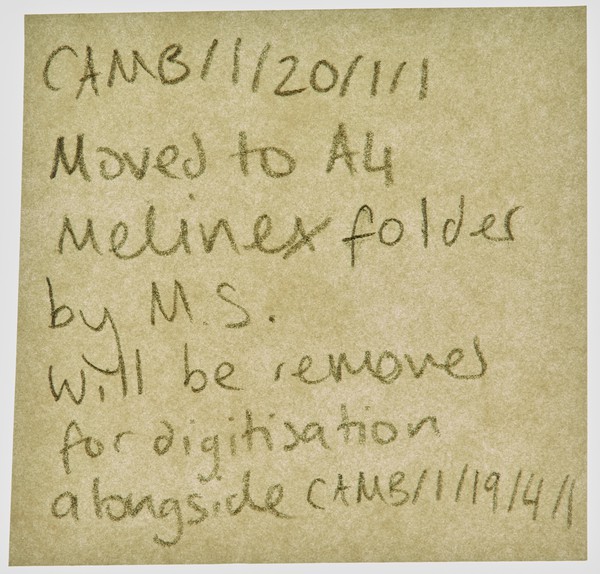 CAMB/1/20/1/1
Moved to A4
Melinex folder
by M.S.
Will be removed
for digitisation
alongside CAMB/1/19/4/1